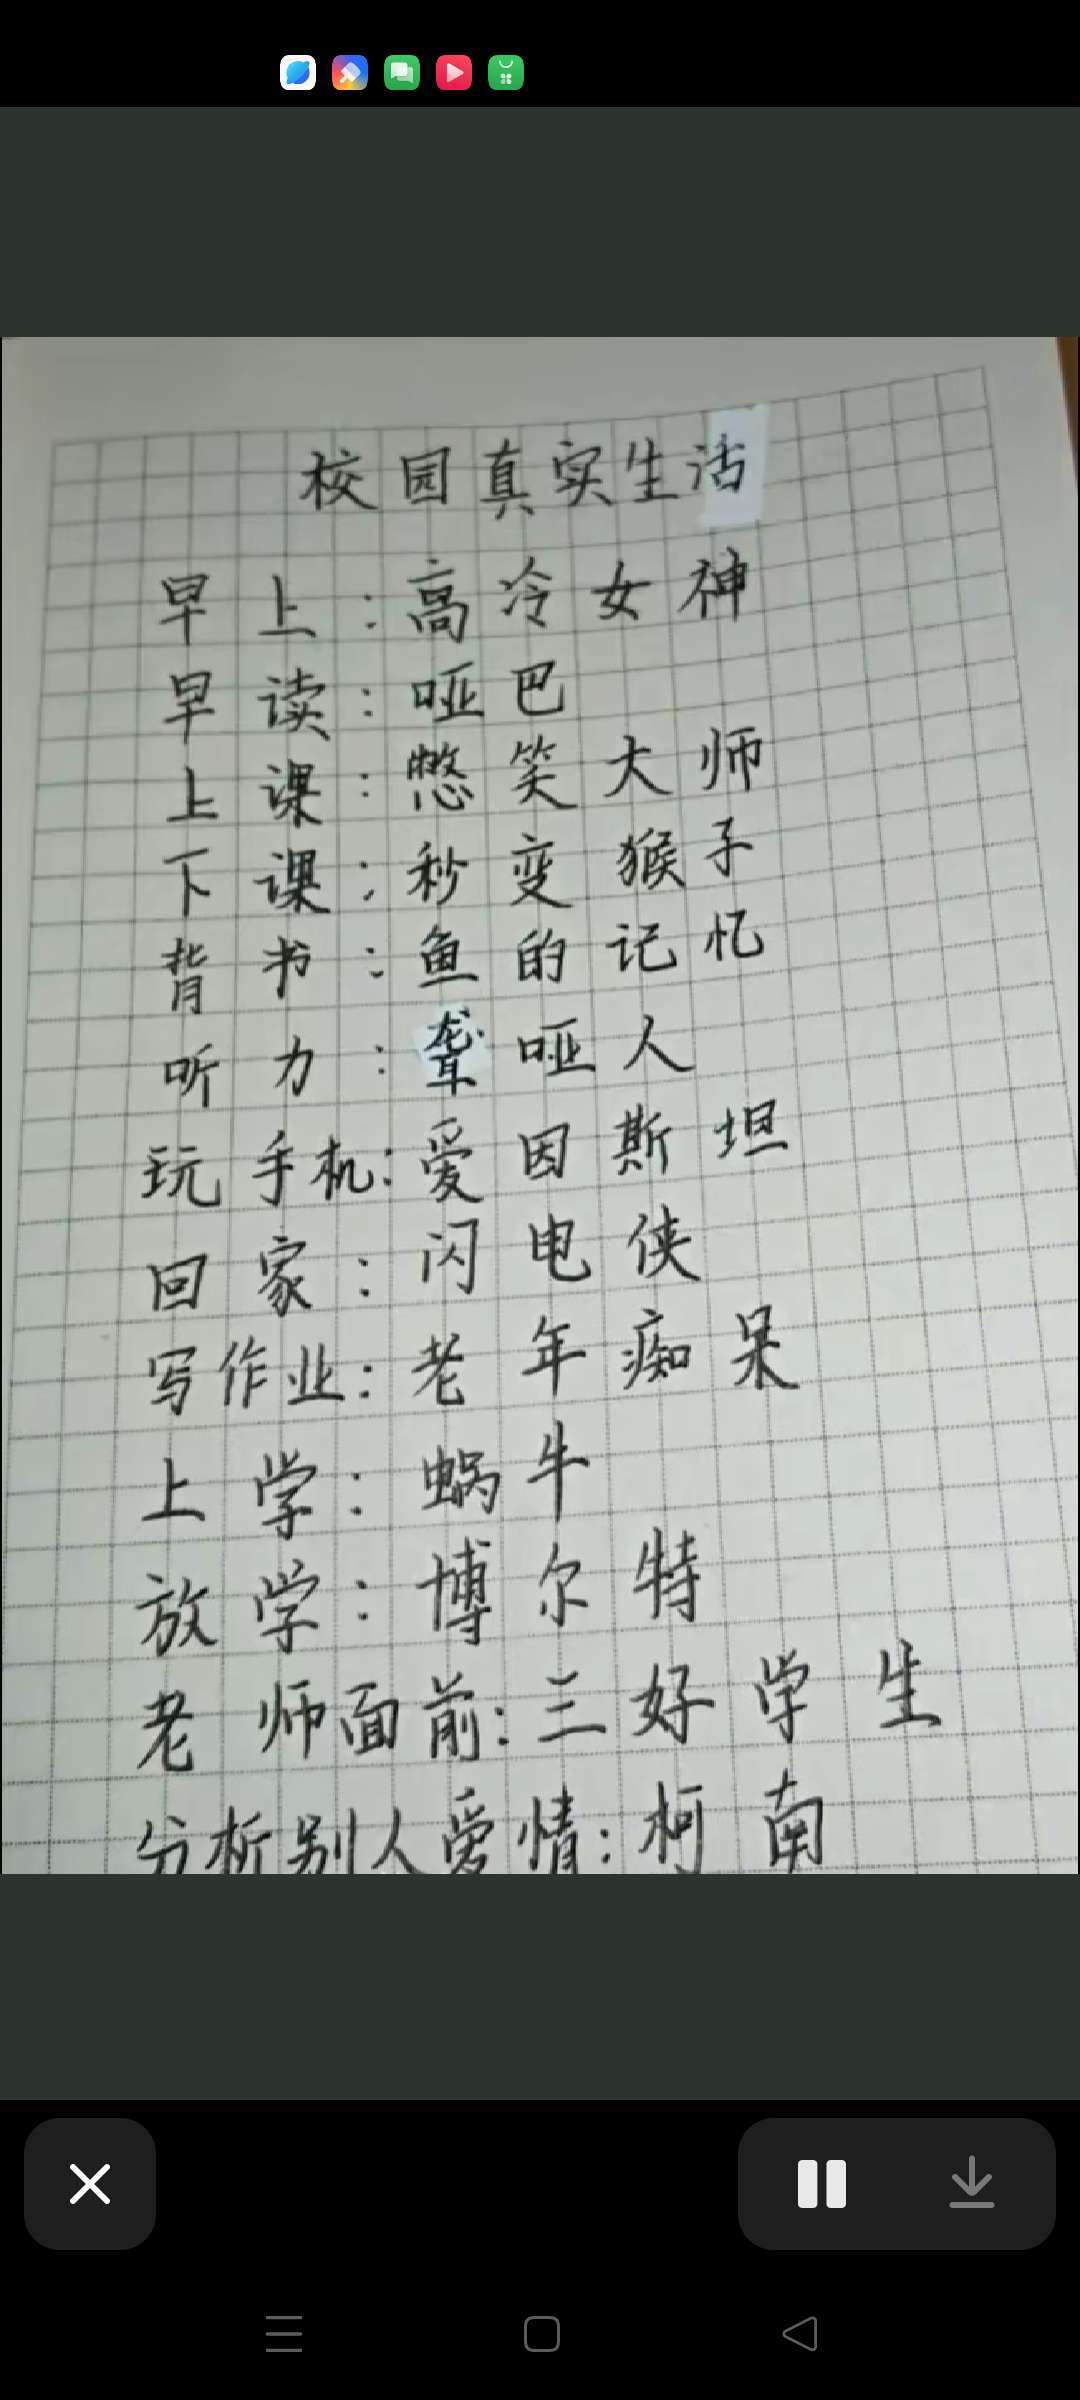 校园真实生活
早上:高冷女神
早读:哑巴
上课:憋笑大师
下课:秒变猴子
背书:鱼的记忆
听力:聋哑人
玩手机:爱因斯坦
回家:闪电侠
写作业:老年痴呆
上学:蜗牛
放学:博尔特
老师面前:三好学生
分析别人爱情:柯南